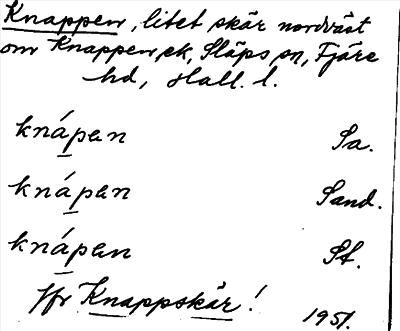 Knappen, litet skär nordväst
om Knappen, ek, Släps sn, Fjäre
hd, Hall. l.
knápen Sa.
knápen Sand.
knápen St.
Jfr Knappskär!
1951.